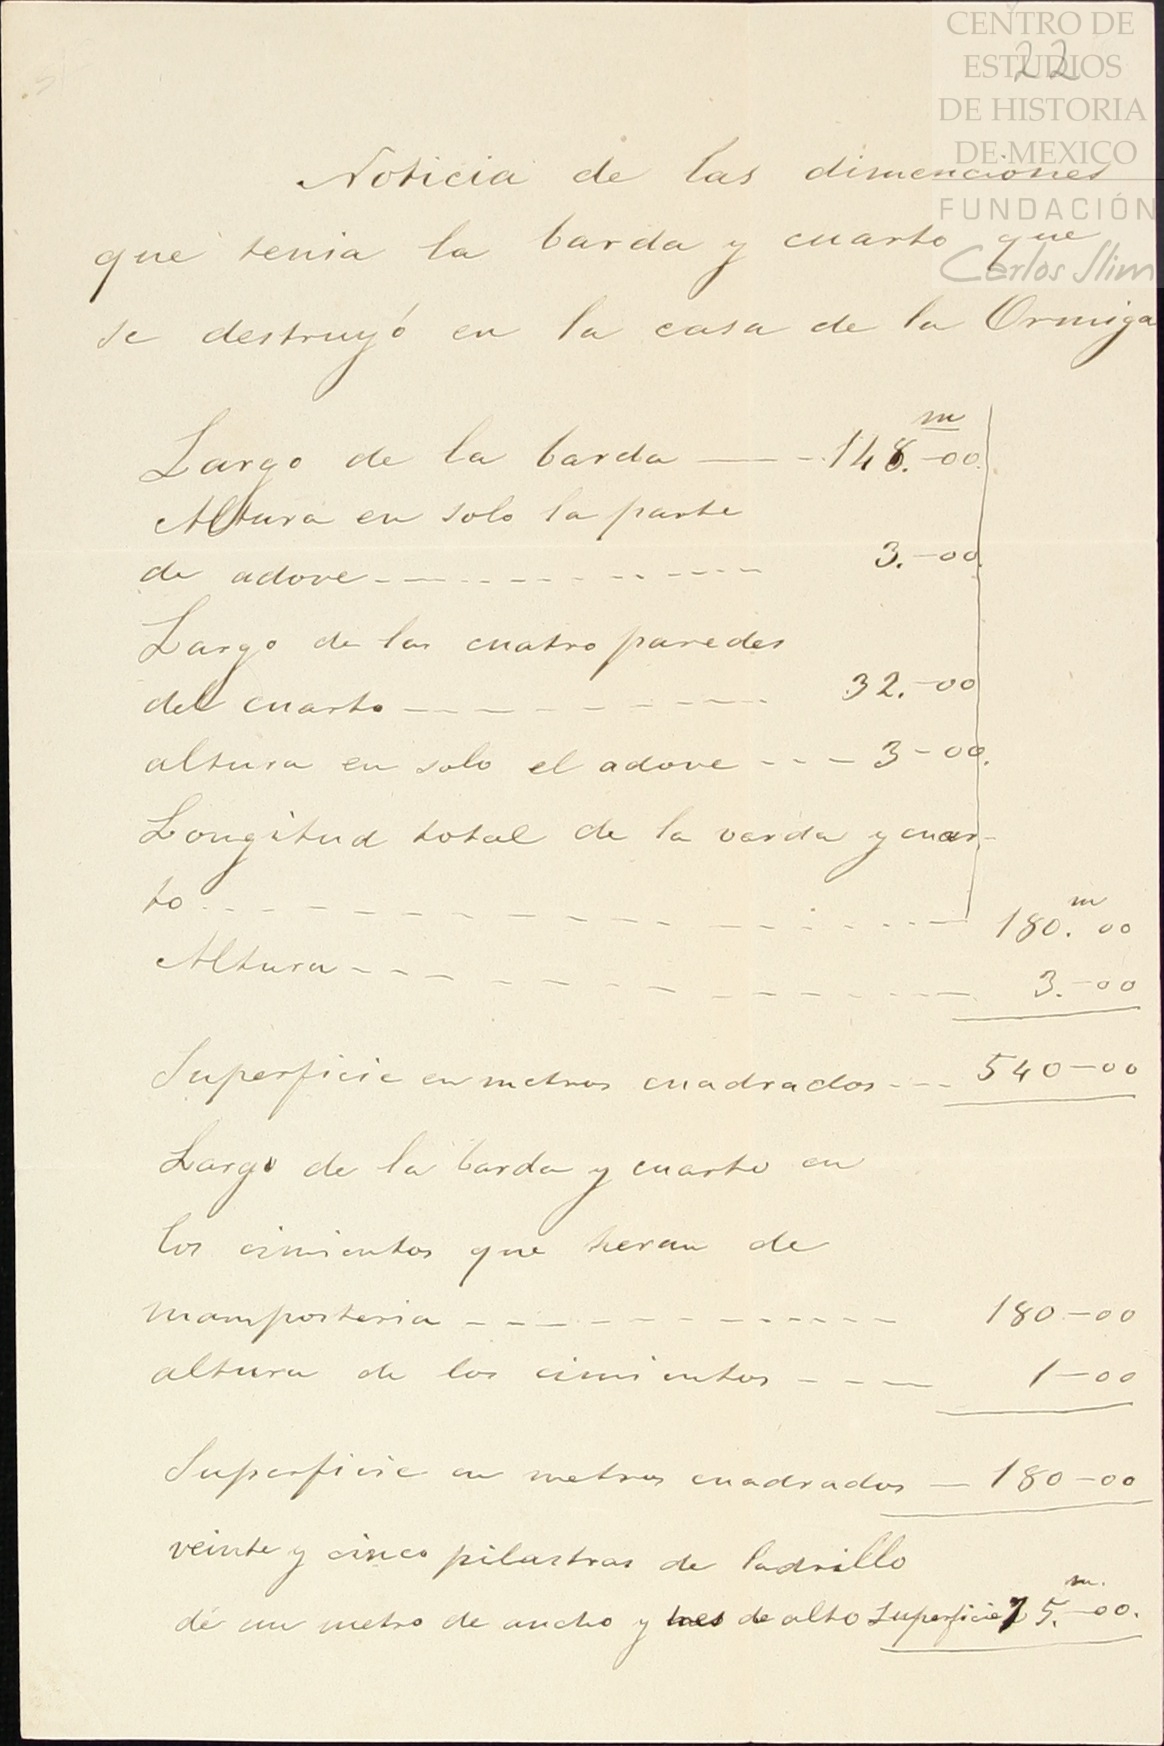 CENTRO DE
ESTUDIOS
DE HISTORIA
DE MEXICO
FUNDACIÓN
Carlos Slim
22
Noticia de las dimenciones
que tenia la barda y cuarto que
se destruyó en la casa de la Ormiga
m
Largo de la barda —— - 148.-00.
Altura en solo la parte
de adove - - - - - - - - - 3.-00.
Largo de las cuatro paredes
del cuarto - - - - - - - 32.-00
altura en solo el adove - - - 3-00.
Longitud total de la varda y cuar-
m
to - - - - - - - - - - - 180.00
Altura - - - - - - - - - - 3.-00
Superficie en metros cuadrados - - - 540-00
Largo de la barda y cuarto en
los cimientos que heran de
mamposteria - - - - - - - - - 180-00
altura de los cimientos - - - 1-00
Superficie en metros cuadrados — 180-00
veinte y cinco pilastras de ladrillo
m.
de un metro de ancho y tres de alto Superficie 75.-00.